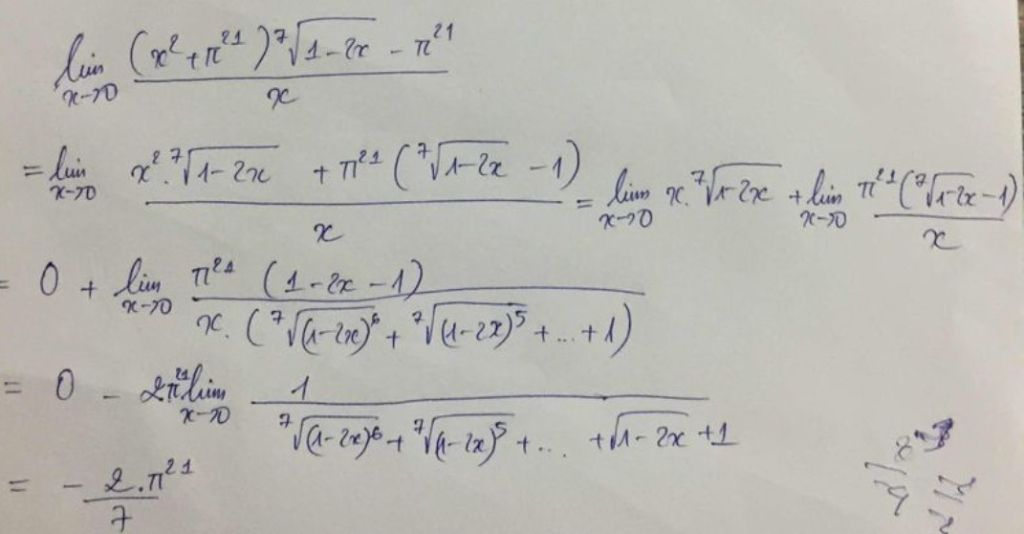 lim x→0 ((x² + π²¹) ⁷√(1-2x) - π²¹) / x
= lim x→0 (x² . ⁷√(1-2x) + π²¹ (⁷√(1-2x) - 1)) / x = lim x→0 x. ⁷√(1-2x) + lim x→0 (π²¹ (⁷√(1-2x) - 1)) / x
= 0 + lim x→0 (π²¹ (1-2x-1)) / (x. (⁷√(1-2x)⁶ + ⁷√(1-2x)⁵ + ... + 1))
= 0 - 2π²¹ lim x→0 1 / (⁷√(1-2x)⁶ + ⁷√(1-2x)⁵ + .... + √(1-2x) + 1)
= - 2.π²¹ / 7